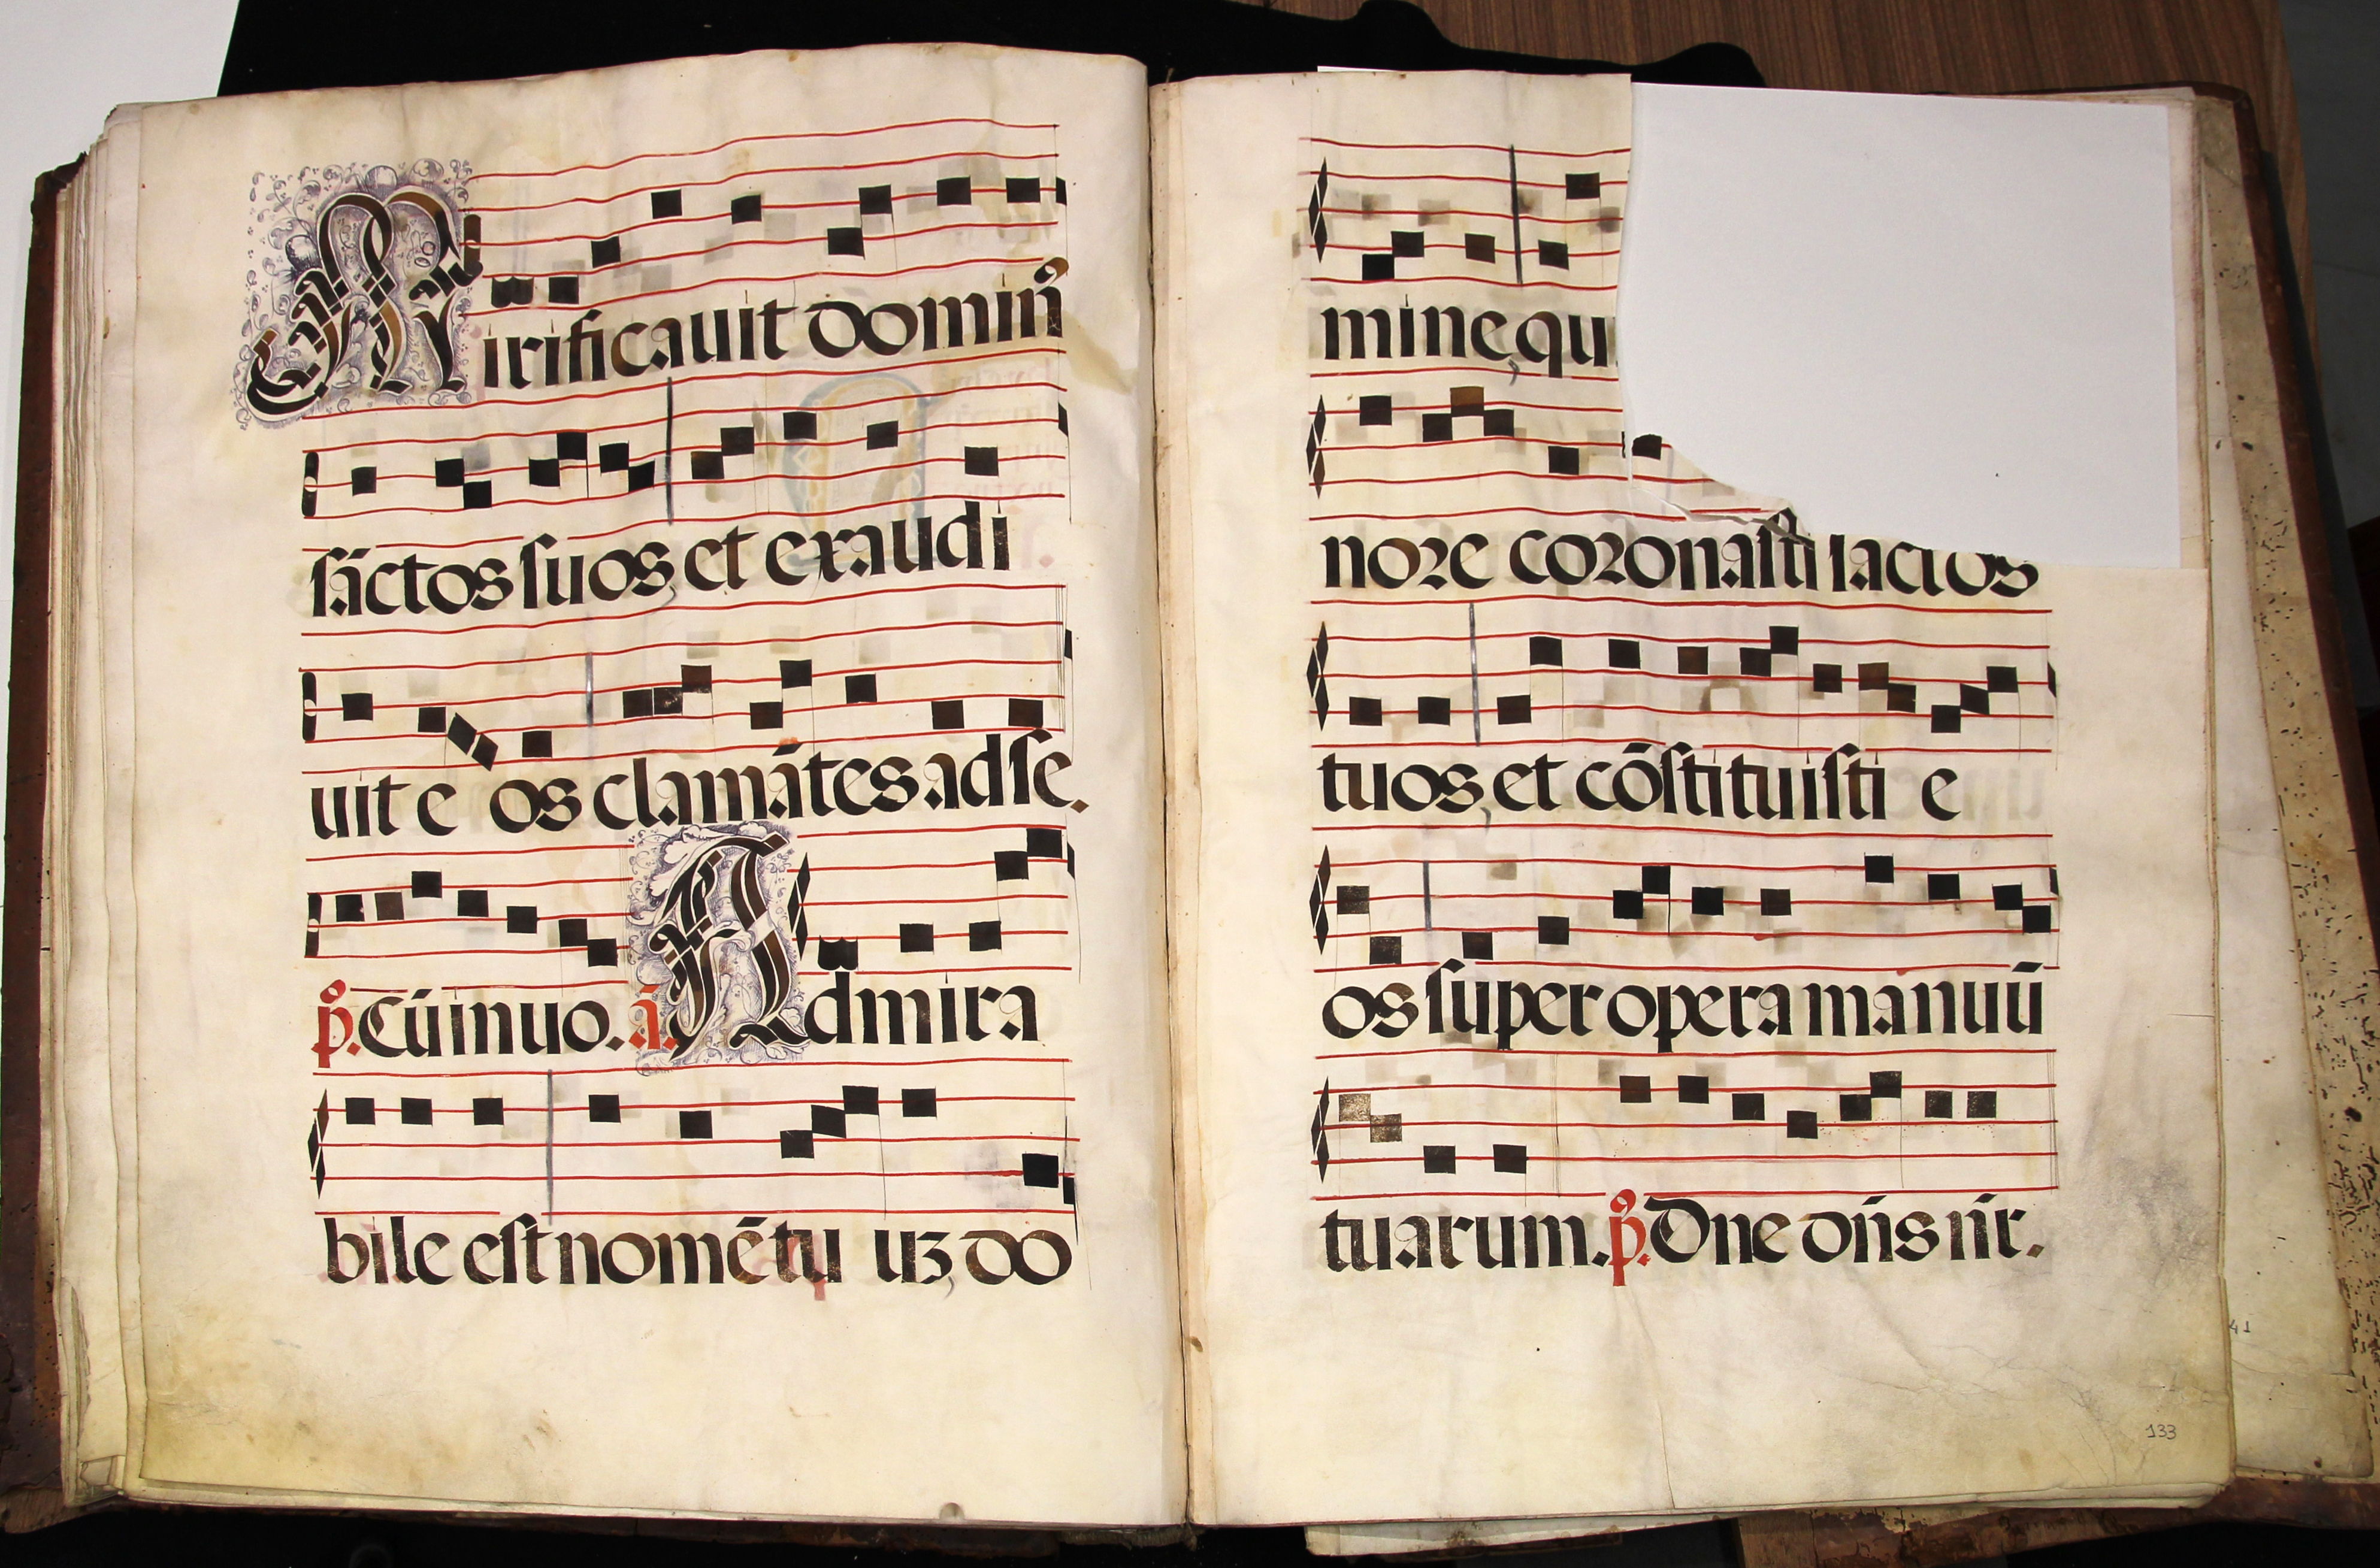 Mirificauit domin̄
sāctos suos, et exaudi
uit e os clamātes ad se.
p̊. Cū inuo. ā. Admira
bile est nomē tu uʒ, do
mine, qu
nore coronasti sāctos
tuos, et cōstituisti e
os super opera manuū
tuarum. p̊. Dne dn̄s nr̄.
41
133